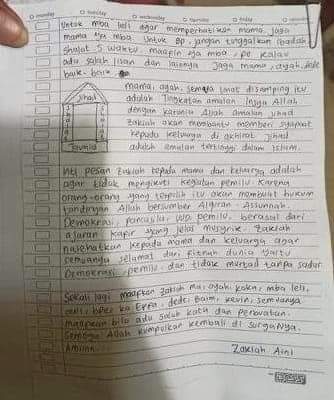 monday tuesday wednesday thursday friday saturday
Untuk mba leli agar memperhatikan mama. Jaga
mama ya mba. Untuk BP, jangan tinggalkan ibadah
shalat 5 waktu. maafin ya mba, pe kalau
ada salah lisan dan lainnya Jaga mama, ayah, dede
baik-baik.
Jihad
Tauhid
mama, ayah, semua taat disamping itu
adalah Tingkatan amalan Insya Allah
dengan karunia Allah amalan jihad
Zakiah akan membantu memberi syafaat
kepada keluarga di akhirat Jihad
adalah amalan tertinggi dalam Islam.
Inti pesan Zakiah kepada mama dan keluarga adalah
agar tidak mengikuti kegiatan pemilu. Karena
orang-orang yang terpilih itu akan membuat hukum
tandingan Allah bersumber Alquran - Assunnah.
Demokrasi, pancasila, UUD, pemilu, berasal dari
ajaran kafir yang jelas musyrik. Zakiah
nasehatkan kepada mama dan keluarga agar
semuanya selamat dari Fitnah dunia yaitu
Demokrasi, pemilu, dan tidak murtad tanpa sadar
Sekali lagi maafkan Zakiah ma, ayah, kaka, mba leli,
ka Effa, dede, Baim, kevin, semuanya
maafkan bila ada salah kata dan perbuatan.
Semoga Allah kumpulkan kembali di surgaNya.
Amiinn.
Zakiah Aini